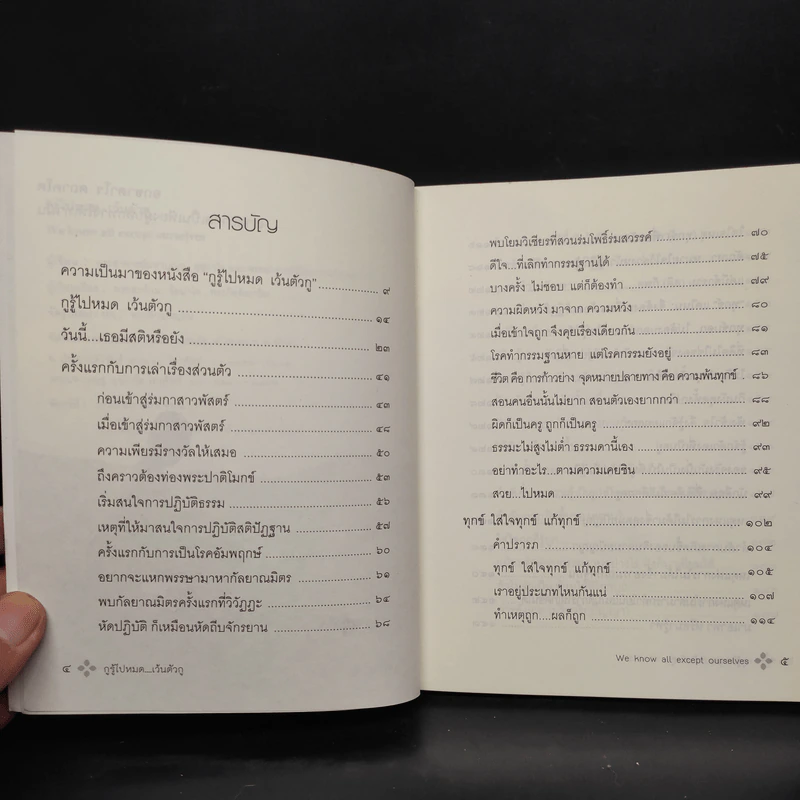 สารบัญ
ความเป็นมาของหนังสือ "กูรู้ไปหมด เว้นตัวกู" ๙
กูรู้ไปหมด เว้นตัวกู ๑๔
วันนี้...เธอมีสติหรือยัง ๒๓
ครั้งแรกกับการเล่าเรื่องส่วนตัว ๔๑
ก่อนเข้าสู่ร่มกาสาวพัสตร์ ๔๓
เมื่อเข้าสู่ร่มกาสาวพัสตร์ ๔๘
ความเพียรมีรางวัลให้เสมอ ๕๐
ถึงคราวต้องท่องพระปาติโมกข์ ๕๓
เริ่มสนใจการปฏิบัติธรรม ๕๖
เหตุที่ให้มาสนใจการปฏิบัติสติปัฏฐาน ๕๗
ครั้งแรกกับการเป็นโรคอัมพฤกษ์ ๖๐
อยากจะแหกพรรษามาหากัลยาณมิตร ๖๑
พบกัลยาณมิตรครั้งแรกที่วิวัฏฏะ ๖๔
หัดปฏิบัติ ก็เหมือนหัดถีบจักรยาน ๖๘
๔ กูรู้ไปหมด...เว้นตัวกู
พบโยมวิเชียรที่สวนร่มโพธิ์ร่มสวรรค์ ๗๐
ดีใจ...ที่เลิกทำกรรมฐานได้ ๗๕
บางครั้ง ไม่ชอบ แต่ก็ต้องทำ ๗๙
ความผิดหวัง มาจาก ความหวัง ๘๐
เมื่อเข้าใจถูก จึงคุยเรื่องเดียวกัน ๘๑
โรคทำกรรมฐานหาย แต่โรคกรรมยังอยู่ ๘๓
ชีวิต คือ การก้าวย่าง จุดหมายปลายทาง คือ ความพ้นทุกข์ ๘๖
สอนคนอื่นนั้นไม่ยาก สอนตัวเองยากกว่า ๘๘
ผิดก็เป็นครู ถูกก็เป็นครู ๙๒
ธรรมะไม่สูงไม่ต่ำ ธรรมดานี้เอง ๙๓
อย่าทำอะไร...ตามความเคยชิน ๙๕
สวย...ไปหมด ๙๙
ทุกข์ ใส่ใจทุกข์ แก้ทุกข์ ๑๐๒
คำปรารภ ๑๐๔
ทุกข์ ใส่ใจทุกข์ แก้ทุกข์ ๑๐๕
เราอยู่ประเภทไหนกันแน่ ๑๐๗
ทำเหตุถูก....ผลก็ถูก ๑๑๔
We know all except ourselves ๕